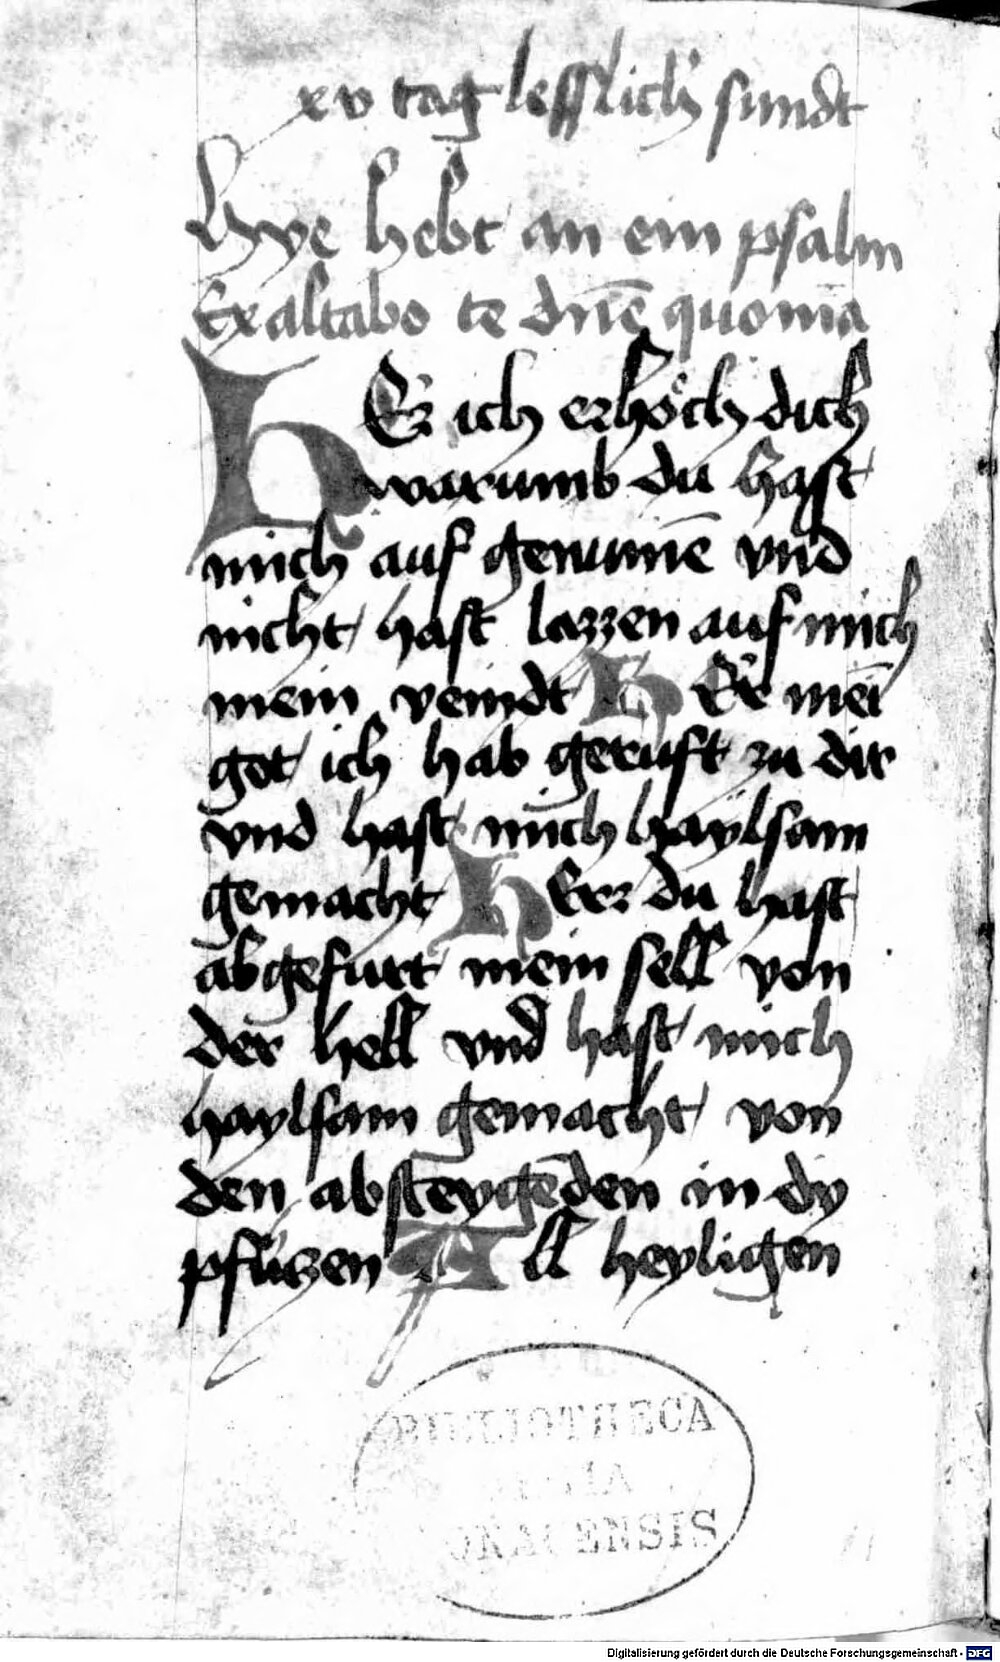 xv tag lesslich sundt
Hye hebt an ein psalm
Exaltabo te dnē quoniā
HEr ich erhöch dich
warumb du hast
mich auf genumē vnd
nicht hast lazzen auf mich
mein veindt HEr mei
got ich hab geruft zu dir
vnd hast mich haylsam
gemacht HErr du hast
abgefurt mein sell von
der hell vnd hast mich
haylsam gemacht von
den absteygēden in dy
pfützen All heyligen
BIBLIOTHECA
REGIA
MONACENSIS
Digitalisierung gefördert durch die Deutsche Forschungsgemeinschaft - DFG